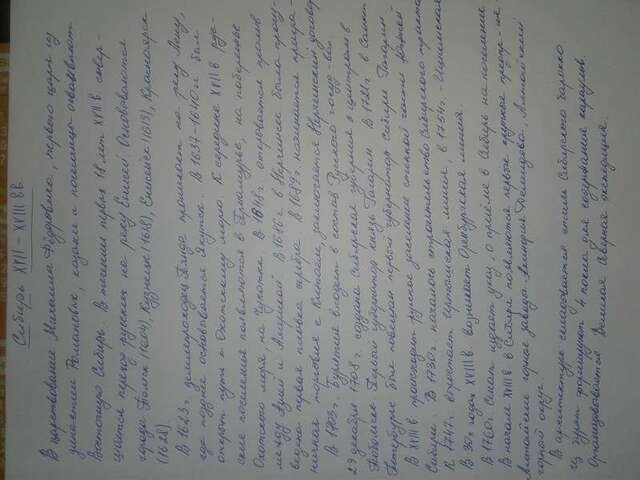 Сибирь XVII – XVIII вв.
В царствование Михаила Фёдоровича, первого царя из
династии Романовых, казаки и поселенцы охватывают
Восточную Сибирь. В течении первых 18 лет XVII в. совер-
шается переход русских на реку Енисей. Основываются
города Томск (1604), Кузнецк (1618), Енисейск (1619), Красноярск
(1628).
В 1623г. землепроходец Пянда проникает на реку Лену,
где позднее основывается Якутск. В 1637-1640гг. был
открыт путь к Охотскому морю. К середине XVII в. рус-
ские поселения появляются в Приамурье, на побережье
Охотского моря, на Чукотке. В 1648г. открывается пролив
между Азией и Америкой. В 1686г. в Нерчинске была произ-
ведена первая плавка серебра. В 1689г. начинается пригра-
ничная торговля с Китаем, заключается Нерчинский договор
В 1703г. Бурятия входит в состав Русского госуд-ва.
29 декабря 1708г. создана Сибирская губерния с центром в
Тобольске. Первый губернатор князь Гагарин. В 1721г. в Санкт
Петербурге был повешан первый губернатор Сибири Гагарин
В XVIII в. происходит русское заселение степной части Южной
Сибири. В 1730г. началось строительство Сибирского тракта
К 1747г. возрастает Иртышская линия, в 1754г. - Ишимская
В 30х годах XVIII в. возникает Оренбургская линия.
В 1760г. Сенат издает указ, о приёме в Сибирь на поселение
В начале XVIII в. в Сибири появляются первые крупные предпр-ия
Алтайские горные заводы Акинфия Демидова, Алтайский
горный округ.
В архитектуре складывается стиль Сибирского барокко
Из бурят формируют 4 полка для содержания караулов.
Организовывается Великая Северная экспедиция.